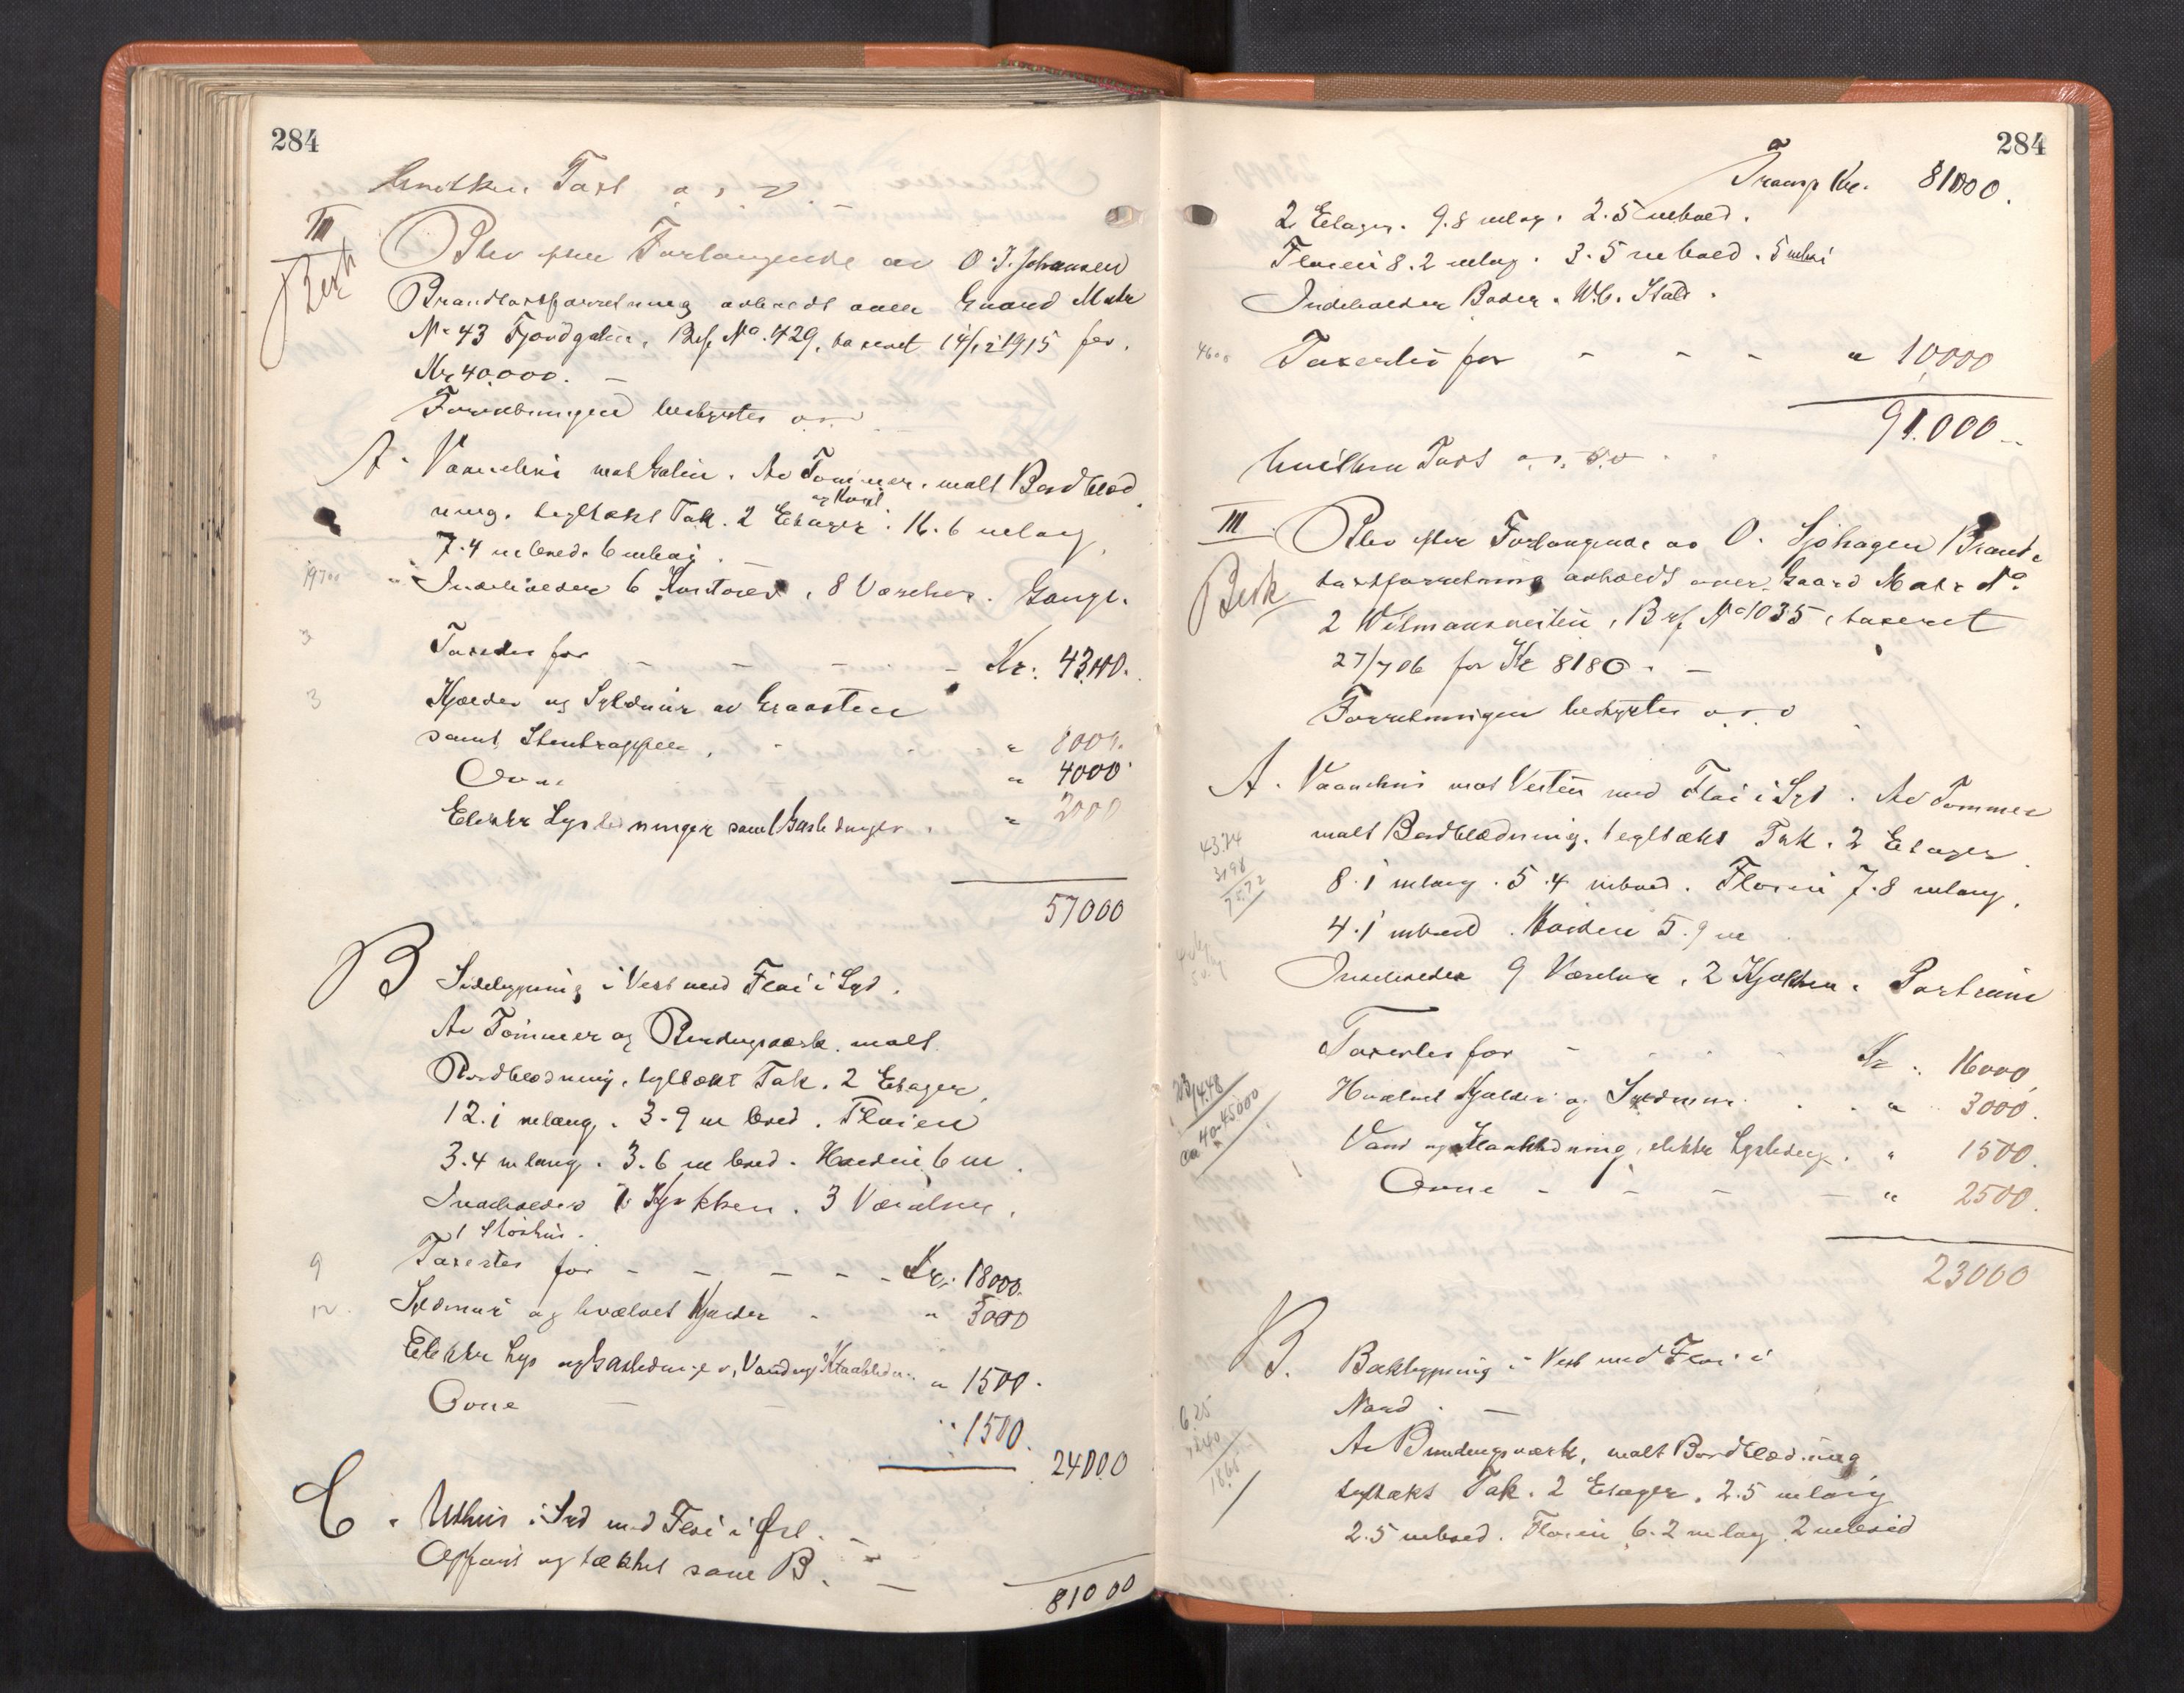 284
hvilken Taxt o. s. v.
III
Besk
Blev efter Forlangende av O. J. Johansen
Brandtaxtforretning avholdt over Gaard Matr
No 43 Fjordgaten, Brf. No. 429, taxeret 14/12 1915 for
Kr 40,000. –
Forretningen bestyrtes o.s.v
A. Vaanehus mot Gaten. Av Tømmer, malt Bordklæd
ning, tegltækt Tak. 2 Etager og Kvist. 16.6 m lang,
7.4 m bred. 6 m høi.
19700
Indeholder 6 Kontorer, 8 Værelser. Gange.
3
Taxertes for – – – – Kr. 43000.
3
Kjælder og Syldmur av Graasten
samt Stentrapper, " 8000.
Ovne " 4000
Elektr Lysledninger samt Gasledninger. " 2000
57000
B Sidebygning i Vest med Fløi i Syd.
Av Tømmer og Bindingsværk, malt
Bordklædning, tegltækt Tak. 2 Etager,
12.1 m lang. 3.9 m bred. Fløien
3.4 m lang. 3.6 m bred. Høiden 6 m.
Indeholder 1 Kjøkken. 3 Værelser,
1 Skoshus.
9
Taxertes for – – – – Kr. 18000.
12.
Syldmur og hvælvet Kjælder " 3000
Elektr Lys og Gasledninger, Vand og Kloakledn. " 1500.
Ovne – – " 1500.
24000
C. Uthus i Syd med Fløi i Øst. –
Opført og tækket som B. –
81000
284
Transp Kr. 81000.
2 Etager. 9.8 m lang. 2.5 m bred.
Fløien 8.2 m lang. 3.5 m bred. 5 m høi
Indeholder Boder. W.C. Stald.
4600
Taxertes for – – – " 10,000
91.000
hvilken Taxt o. s. v
III
Besk
Blev efter Forlangende av O. Sjøhagen Brand
taxtforretning avholdt over Gaard Matr No
2 Wilmannsveiten, Brf No 1035, taxeret
27/7 06 for Kr 8180. –
Forretningen bestyrtes o.s.v
A. Vaanehus mot Veiten med Fløi i Syd. Av Tømmer
malt Bordklædning, tegltækt Tak. 2 Etager
43.74
31.98
75.72
8.1 m lang. 5.4 m bred. Fløien 7.8 m lang,
4.1 m bred. Høiden 5.9 m
Indeholder 9 Værelser, 2 Kjøkken. Portrum
Taxertes for – Kr. 16000,
Hvælvet Kjælder og Syldmur. " 3000.
ca 40-45000
Vand og Kloakledning, elektr Lysledng. " 1500.
Ovne – – – – " 2500.
23000
B. Bakbygning i Vest med Fløi i
Nord. –
6.25
12.40
18.65
Av Bindingsværk, malt Bordklædning
tegltækt Tak. 2 Etager, 2.5 m lang
2.5 m bred. Fløien 6.2 m lang 2 m bred